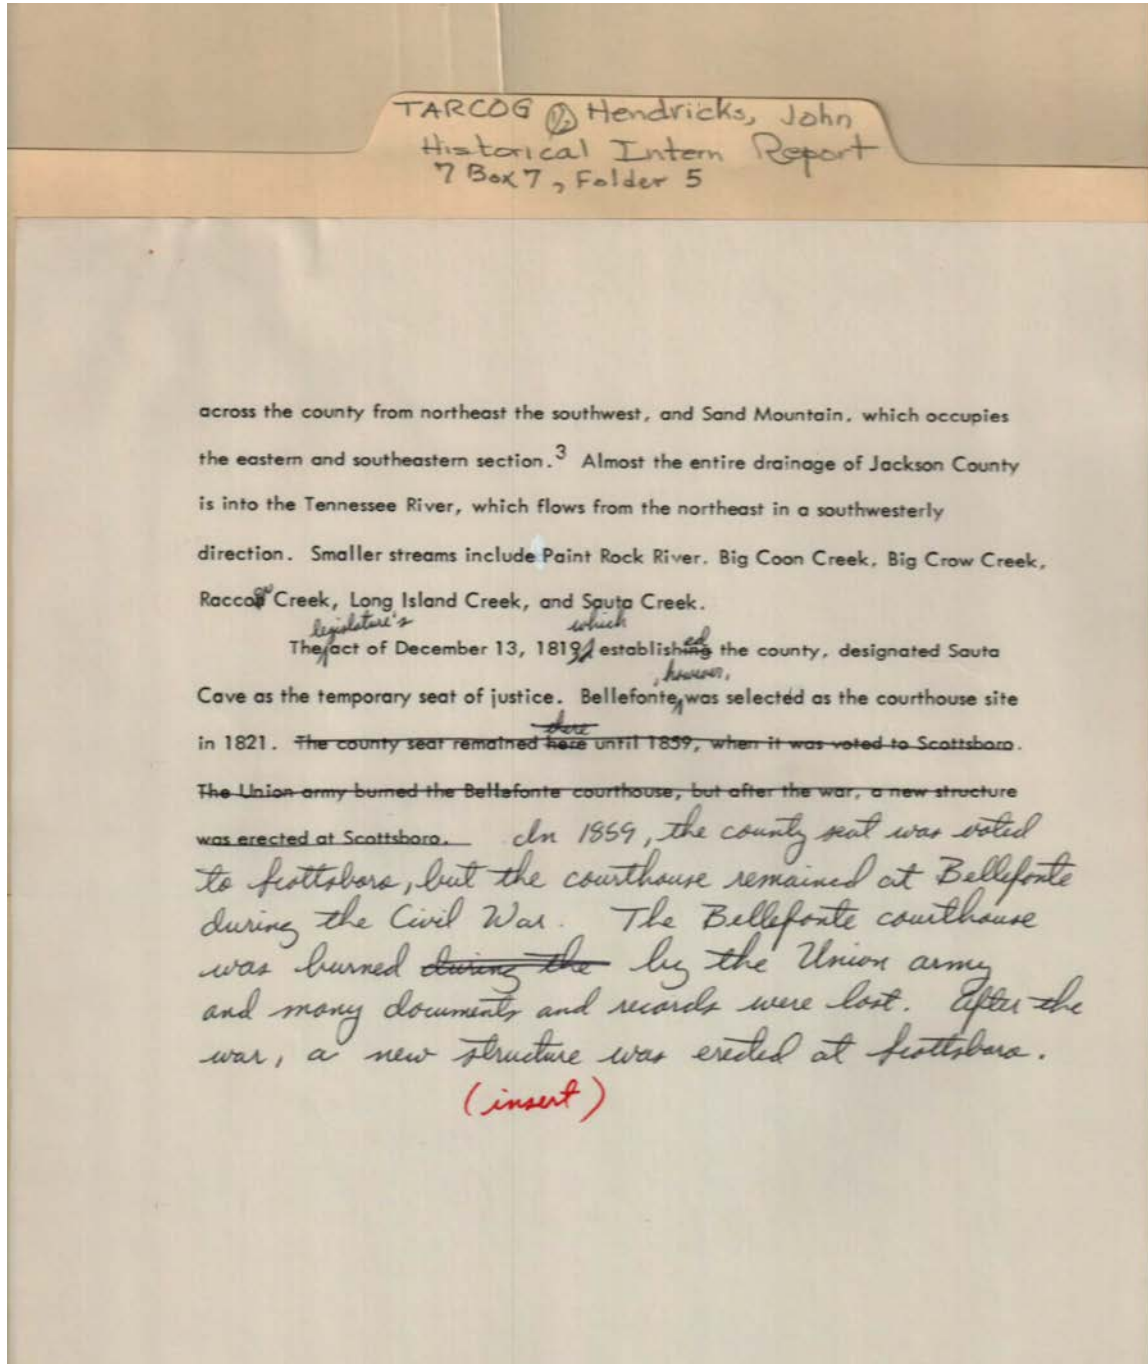 TARCOG 1/2 Hendricks, John
Historical Intern Report
7 Box 7, Folder 5
across the county from northeast the southwest, and Sand Mountain, which occupies
the eastern and southeastern section.3 Almost the entire drainage of Jackson County
is into the Tennessee River, which flows from the northeast in a southwesterly
direction. Smaller streams include Paint Rock River, Big Coon Creek, Big Crow Creek,
Raccoon Creek, Long Island Creek, and Sauta Creek.
legislature's which
The act of December 13, 1819, established the county, designated Sauta
, however,
Cave as the temporary seat of justice. Bellefonte was selected as the courthouse site
there
in 1821. The county seat remained here until 1859, when it was voted to Scottsboro.
The Union army burned the Bellefonte courthouse, but after the war, a new structure
was erected at Scottsboro. In 1859, the county seat was voted
to Scottsboro, but the courthouse remained at Bellefonte
during the Civil War. The Bellefonte courthouse
was burned during the by the Union army
and many documents and records were lost. After the
war, a new structure was erected at Scottsboro.
(insert)